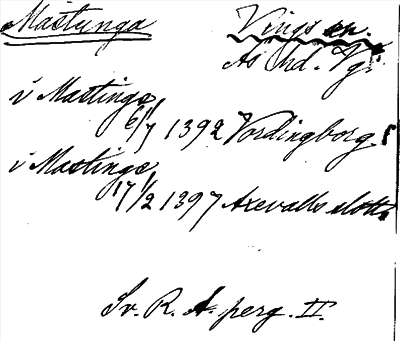 Mastunga Vings sn.
Ås hd. Vg.
i Mastinge
6/7 1392 Vordingborg
i Mastinge
17/2 1397 Axevalls slott
Sv. R. A. perg. II.